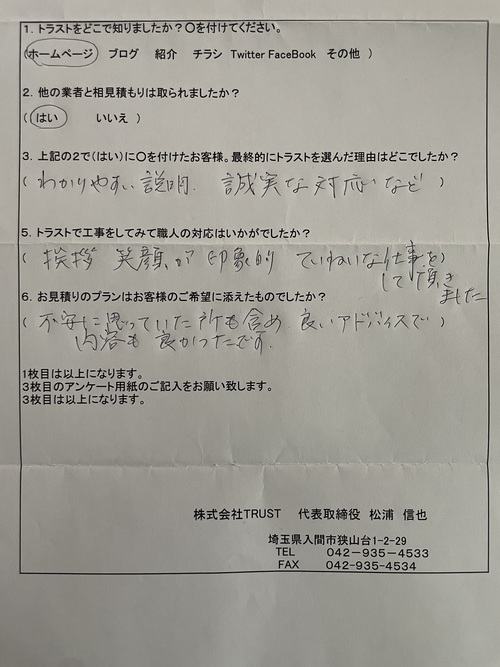 1. トラストをどこで知りましたか？〇を付けてください。
(ホームページ ブログ 紹介 チラシ Twitter FaceBook その他 )
2. 他の業者と相見積もりは取られましたか？
( はい いいえ )
3. 上記の2で(はい)に〇を付けたお客様。最終的にトラストを選んだ理由はどこでしたか？
( わかりやすい説明. 誠実な対応 など )
5. トラストで工事をしてみて職人の対応はいかがでしたか？
( 挨拶 笑顔が印象的 ていねいな仕事を)
して頂き
ました
6. お見積りのプランはお客様のご希望に添えたものでしたか？
( 不安に思っていた所も含め 良いアドバイスで )
内容も良かったです.
1枚目は以上になります。
3枚目のアンケート用紙のご記入をお願い致します。
3枚目は以上になります。
株式会社TRUST 代表取締役 松浦 信也
埼玉県入間市狭山台1-2-29
TEL 042-935-4533
FAX 042-935-4534